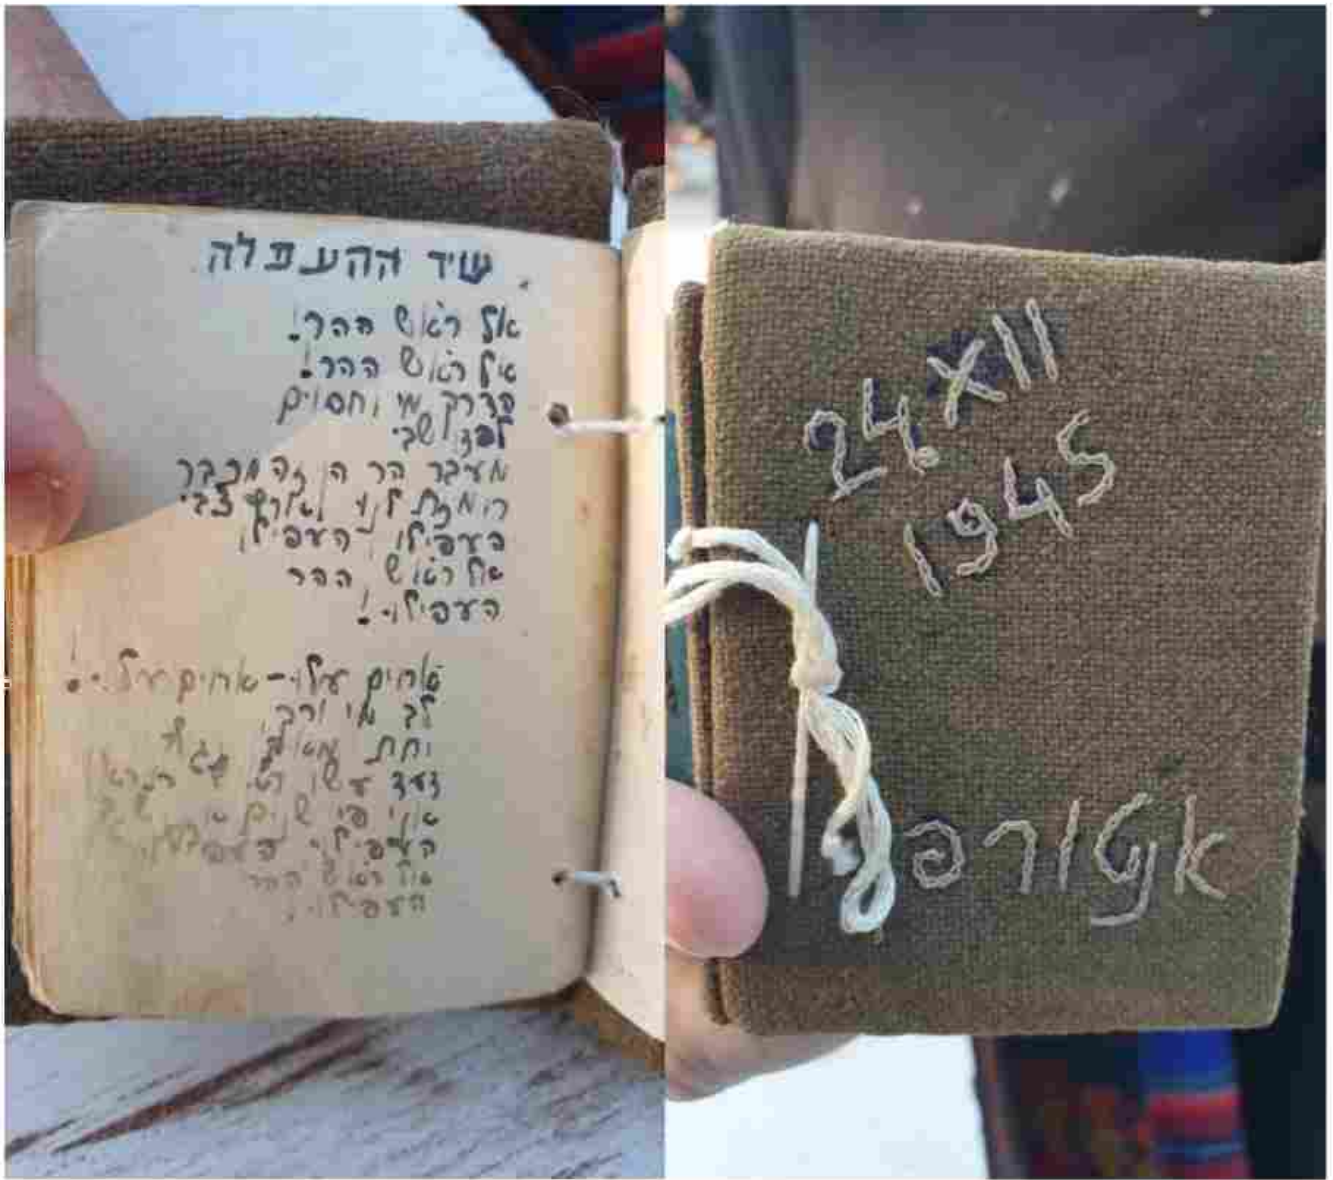 שיר ההעפלה
אל ראש ההר!
אל ראש ההר!
הדרך מי יחסום
לפדויי שבי
מעבר הר הן זה מכבר
רומזת לנו ארץ צבי
העפילו העפילו
אל ראש ההר
העפילו!
אחים עלו - אחים עלו!
לב מי ירך
וחת
צעד עשו
העפילו
אל ראש ההר
העפילו
24.XII
1945
אנטורפ